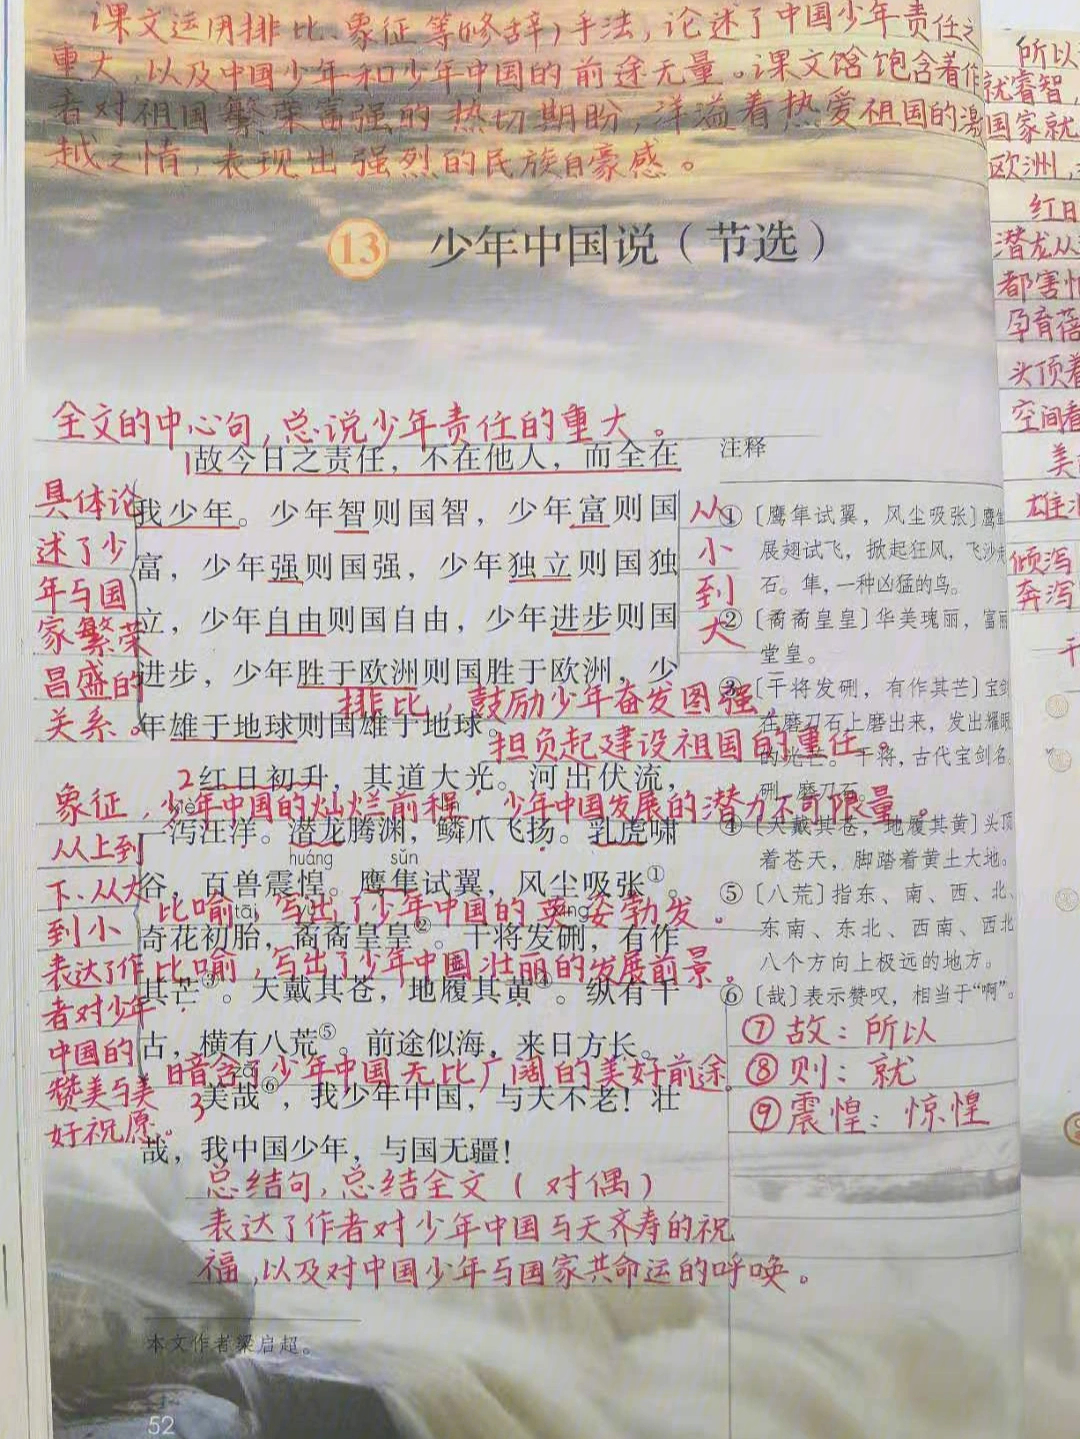 课文运用排比、象征等(修辞)手法,论述了中国少年责任之
重大,以及中国少年和少年中国的前途无量。课文饱含着作
者对祖国繁荣富强的热切期盼,洋溢着热爱祖国的激
越之情,表现出强烈的民族自豪感。
13 少年中国说(节选)
全文的中心句,总说少年责任的重大。
1故今日之责任,不在他人,而全在
我少年。少年智则国智,少年富则国
富,少年强则国强,少年独立则国独
立,少年自由则国自由,少年进步则国
进步,少年胜于欧洲则国胜于欧洲,少
年雄于地球则国雄于地球。
具体论
述了少
年与国
家繁荣
昌盛的
关系。
从
小
到
大
排比,鼓励少年奋发图强,
担负起建设祖国的重任。
2红日初升,其道大光。河出伏流,
象征,少年中国的灿烂前程 少年中国发展的潜力不可限量。
xiè
一泻汪洋。潜龙腾渊,鳞爪飞扬。乳虎啸
huáng sǔn
谷,百兽震惶。鹰隼试翼,风尘吸张①。
比喻,写出了少年中国的英姿勃发。
tāi yù xíng
奇花初胎,矞矞皇皇②。干将发硎,有作
比喻,写出了少年中国壮丽的发展前景。
其芒③。天戴其苍,地履其黄④。纵有千
古,横有八荒⑤。前途似海,来日方长。
暗含了少年中国无比广阔的美好前途。
zāi
3美哉⑥,我少年中国,与天不老!壮
哉,我中国少年,与国无疆!
从上到
下、从大
到小
表达了作
者对少年
中国的
赞美与美
好祝愿。
总结句,总结全文(对偶)
表达了作者对少年中国与天齐寿的祝
福,以及对中国少年与国家共命运的呼唤。
本文作者梁启超。
52
注释
①〔鹰隼试翼,风尘吸张〕鹰隼
展翅试飞,掀起狂风,飞沙走
石。隼,一种凶猛的鸟。
②〔矞矞皇皇〕华美瑰丽,富丽
堂皇。
③〔干将发硎,有作其芒〕宝剑
在磨刀石上磨出来,发出耀眼
的光芒。干将,古代宝剑名。
硎,磨刀石。
④〔天戴其苍,地履其黄〕头顶
着苍天,脚踏着黄土大地。
⑤〔八荒〕指东、南、西、北、
东南、东北、西南、西北
八个方向上极远的地方。
⑥〔哉〕表示赞叹,相当于“啊”。
⑦故:所以
⑧则:就
⑨震惶:惊惶
所以
就睿智,
国家就
欧洲,
红日
潜龙从
都害怕
孕育蓓
头顶着
空间看
美
雄
倾泻
奔泻